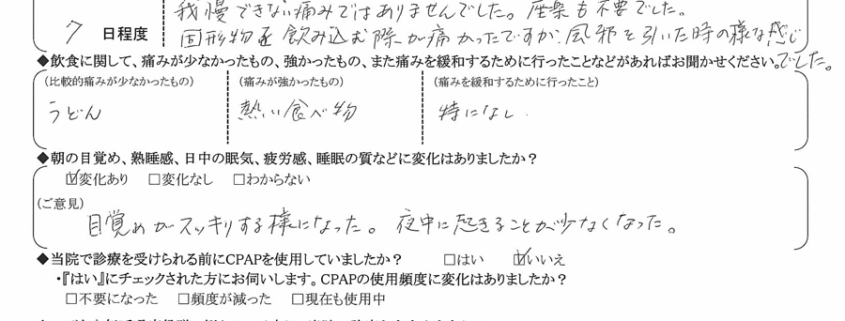 我慢できない痛みではありませんでした。座薬も不要でした。
7 日程度 固形物を飲み込む際が痛かったですが、風邪を引いた時の様な感じでした。
◆飲食に関して、痛みが少なかったもの、強かったもの、また痛みを緩和するために行ったことなどがあればお聞かせください。
(比較的痛みが少なかったもの) (痛みが強かったもの) (痛みを緩和するために行ったこと)
うどん 熱い食べ物 特になし
◆朝の目覚め、熟睡感、日中の眠気、疲労感、睡眠の質などに変化はありましたか?
☑変化あり □変化なし □わからない
(ご意見)
目覚めがスッキリする様になった。夜中に起きることが少なくなった。
◆当院で診療を受けられる前にCPAPを使用していましたか? □はい ☑いいえ
・『はい』にチェックされた方にお伺いします。CPAPの使用頻度に変化はありましたか?
□不要になった □頻度が減った □現在も使用中